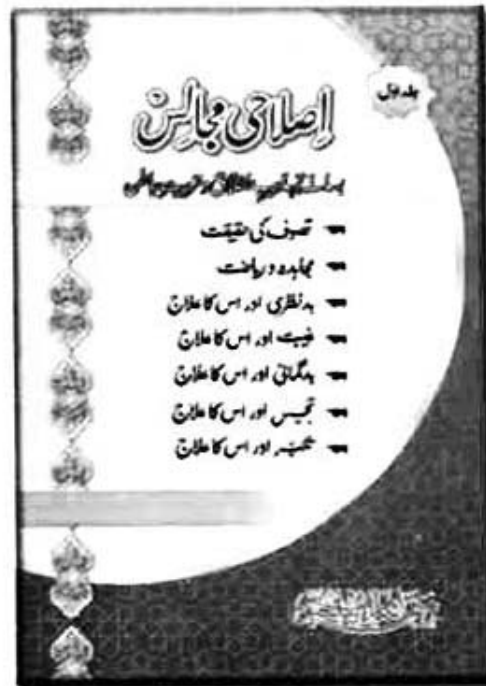 جلد اول
اِصلاحی مجالِسْ
تصوف کی حقیقت
مجاہدہ و ریاضت
بدنظری اور اس کا علاج
غیبت اور اس کا علاج
بدگمانی اور اس کا علاج
تجسس اور اس کا علاج
تکبر اور اس کا علاج